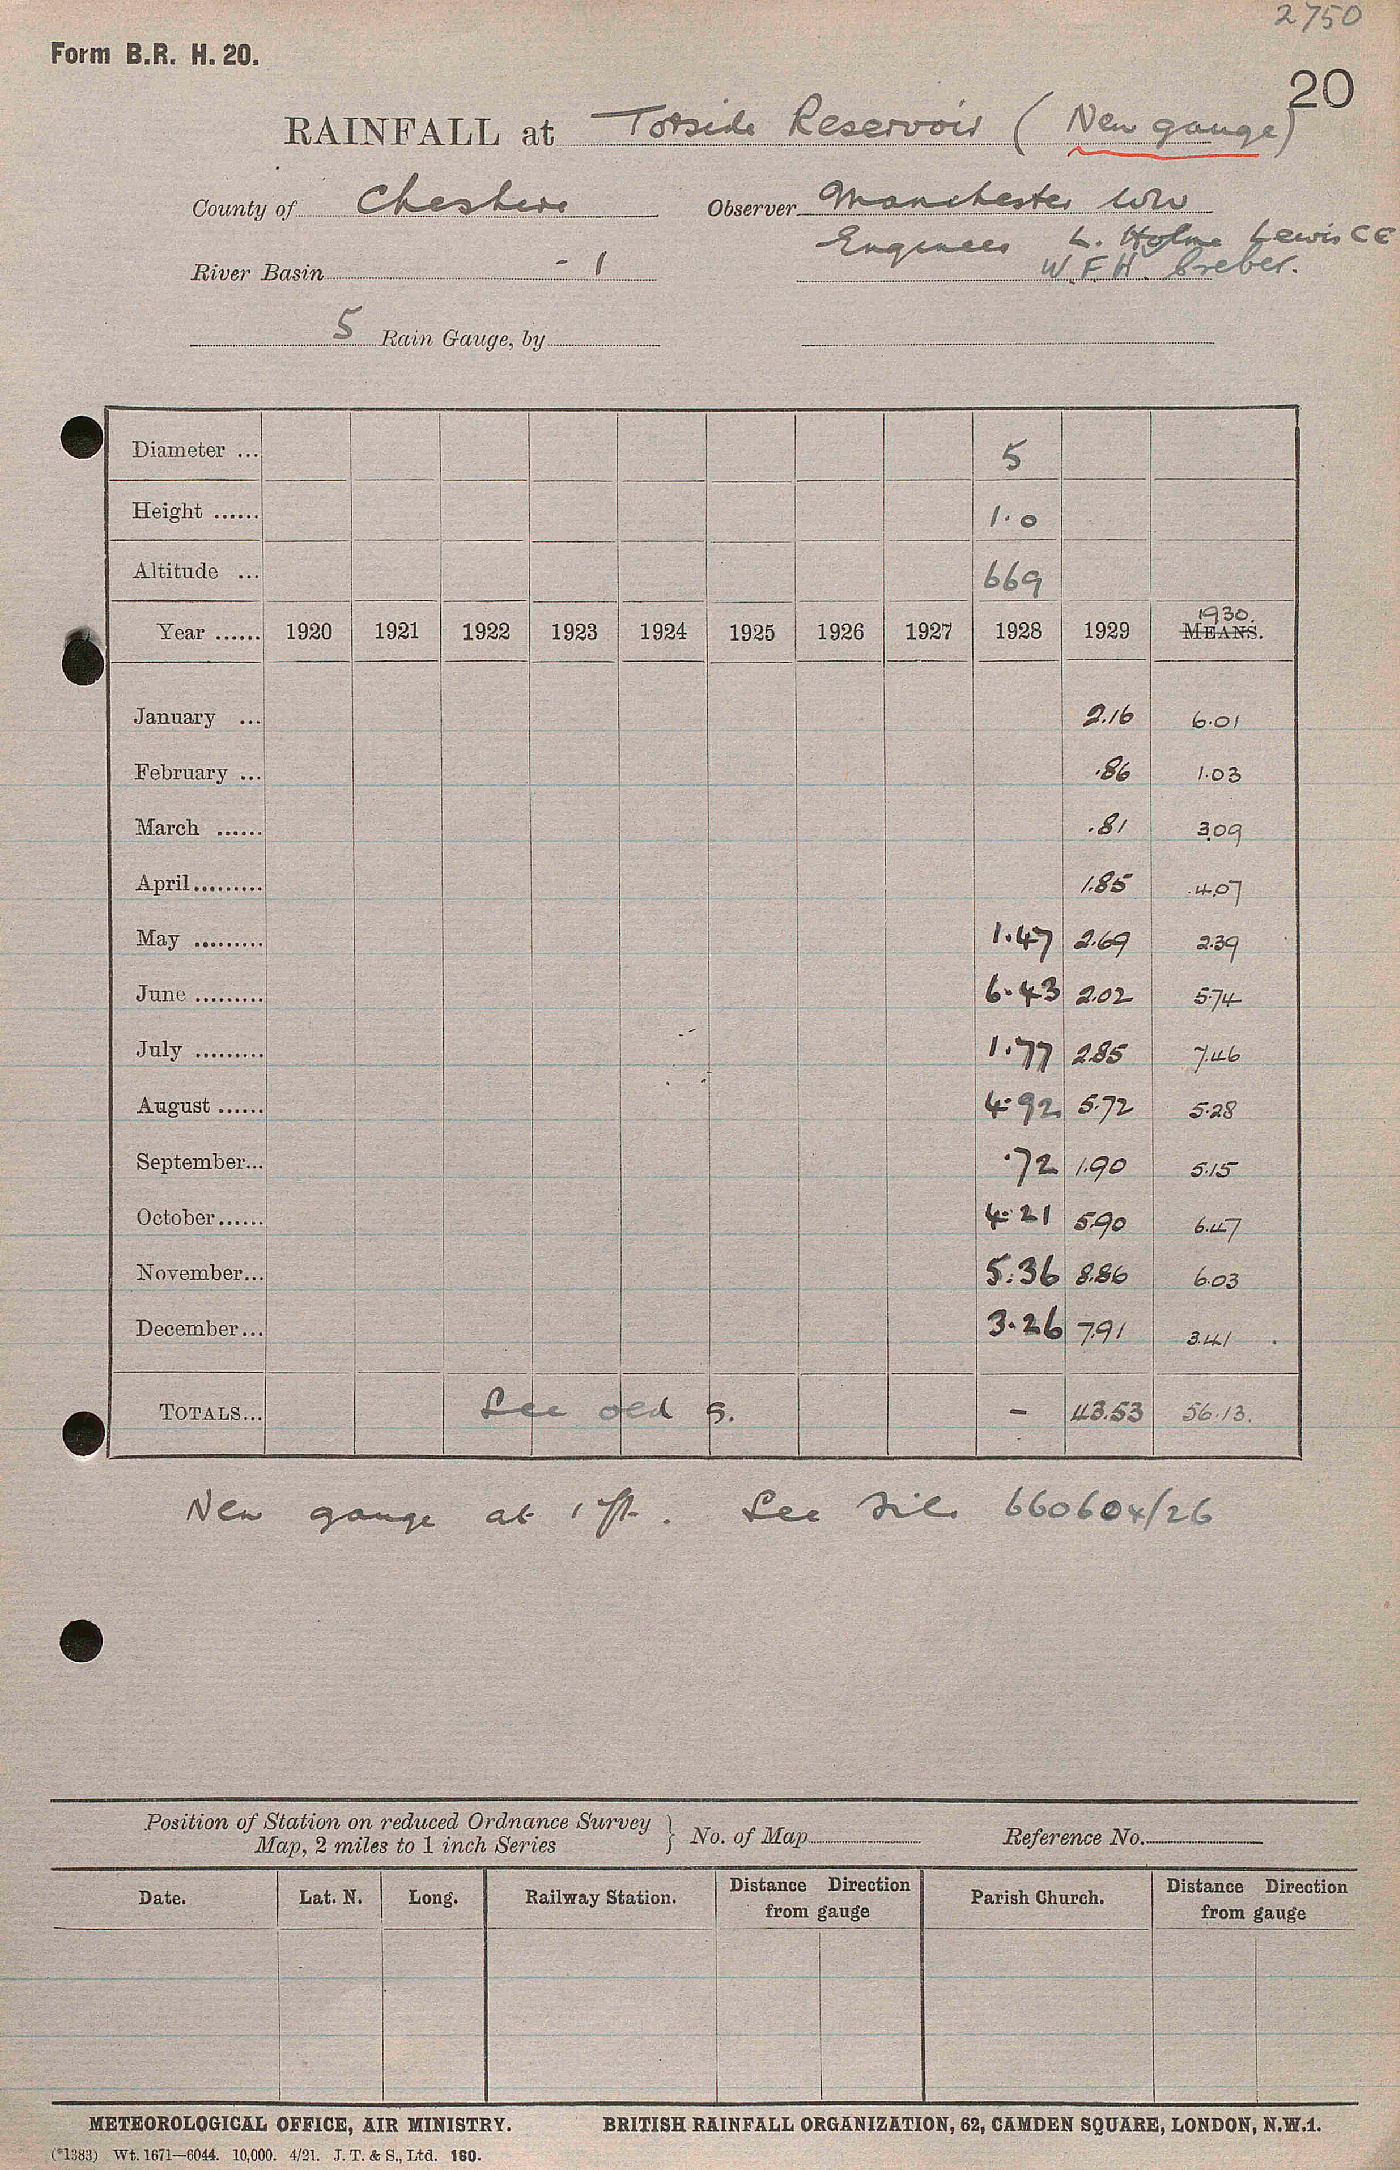 2750
Form B.R. H. 20.
20
RAINFALL at Torside Reservoir (New gauge)
County of Cheshire Observer Manchester WW
Engineer L. Holme Lewis CE
River Basin - 1 W.F.H. Creber.
5 Rain Gauge, by
Diameter ... 5
Height ...... 1.0
Altitude ... 669
1930.
Year ...... 1920 1921 1922 1923 1924 1925 1926 1927 1928 1929 MEANS.
January ... 2.16 6.01
February ... .86 1.03
March ...... .81 3.09
April......... 1.85 4.07
May ......... 1.47 2.69 2.39
June ......... 6.43 2.02 5.74
July ......... 1.77 2.85 7.46
August ...... 4.92 5.72 5.28
September... .72 1.90 5.15
October...... 4.21 5.90 6.47
November... 5.36 8.86 6.03
December... 3.26 7.91 3.41
TOTALS... See old G. - 43.53 56.13.
New gauge at 1 ft. See file 660604/26
Position of Station on reduced Ordnance Survey
Map, 2 miles to 1 inch Series } No. of Map Reference No.
Date. Lat. N. Long. Railway Station. Distance Direction from gauge Parish Church. Distance Direction from gauge
METEOROLOGICAL OFFICE, AIR MINISTRY. BRITISH RAINFALL ORGANIZATION, 62, CAMDEN SQUARE, LONDON, N.W.1.
(*1383) Wt. 1671—6044. 10,000. 4/21. J. T. & S., Ltd. 160.